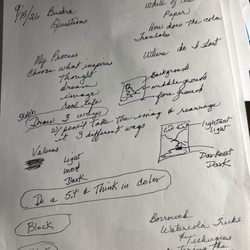 9/15/26 Buskra
Questions
White of the
Paper
How does the color
Translate
Where do I start
My Process
Choose what inspires
Thought
dream
image
real life
Background
middle grounds
fore ground
Sketch
Draw 3 ways
w/pencil Take the
rearrange
3 different ways
Values
Light
med
Dark
Lightest
Light
Darkest
Dark
Do a 5x7 Think in Color
Block
Borrowed
Watercolor Tricks
& Techniques
the